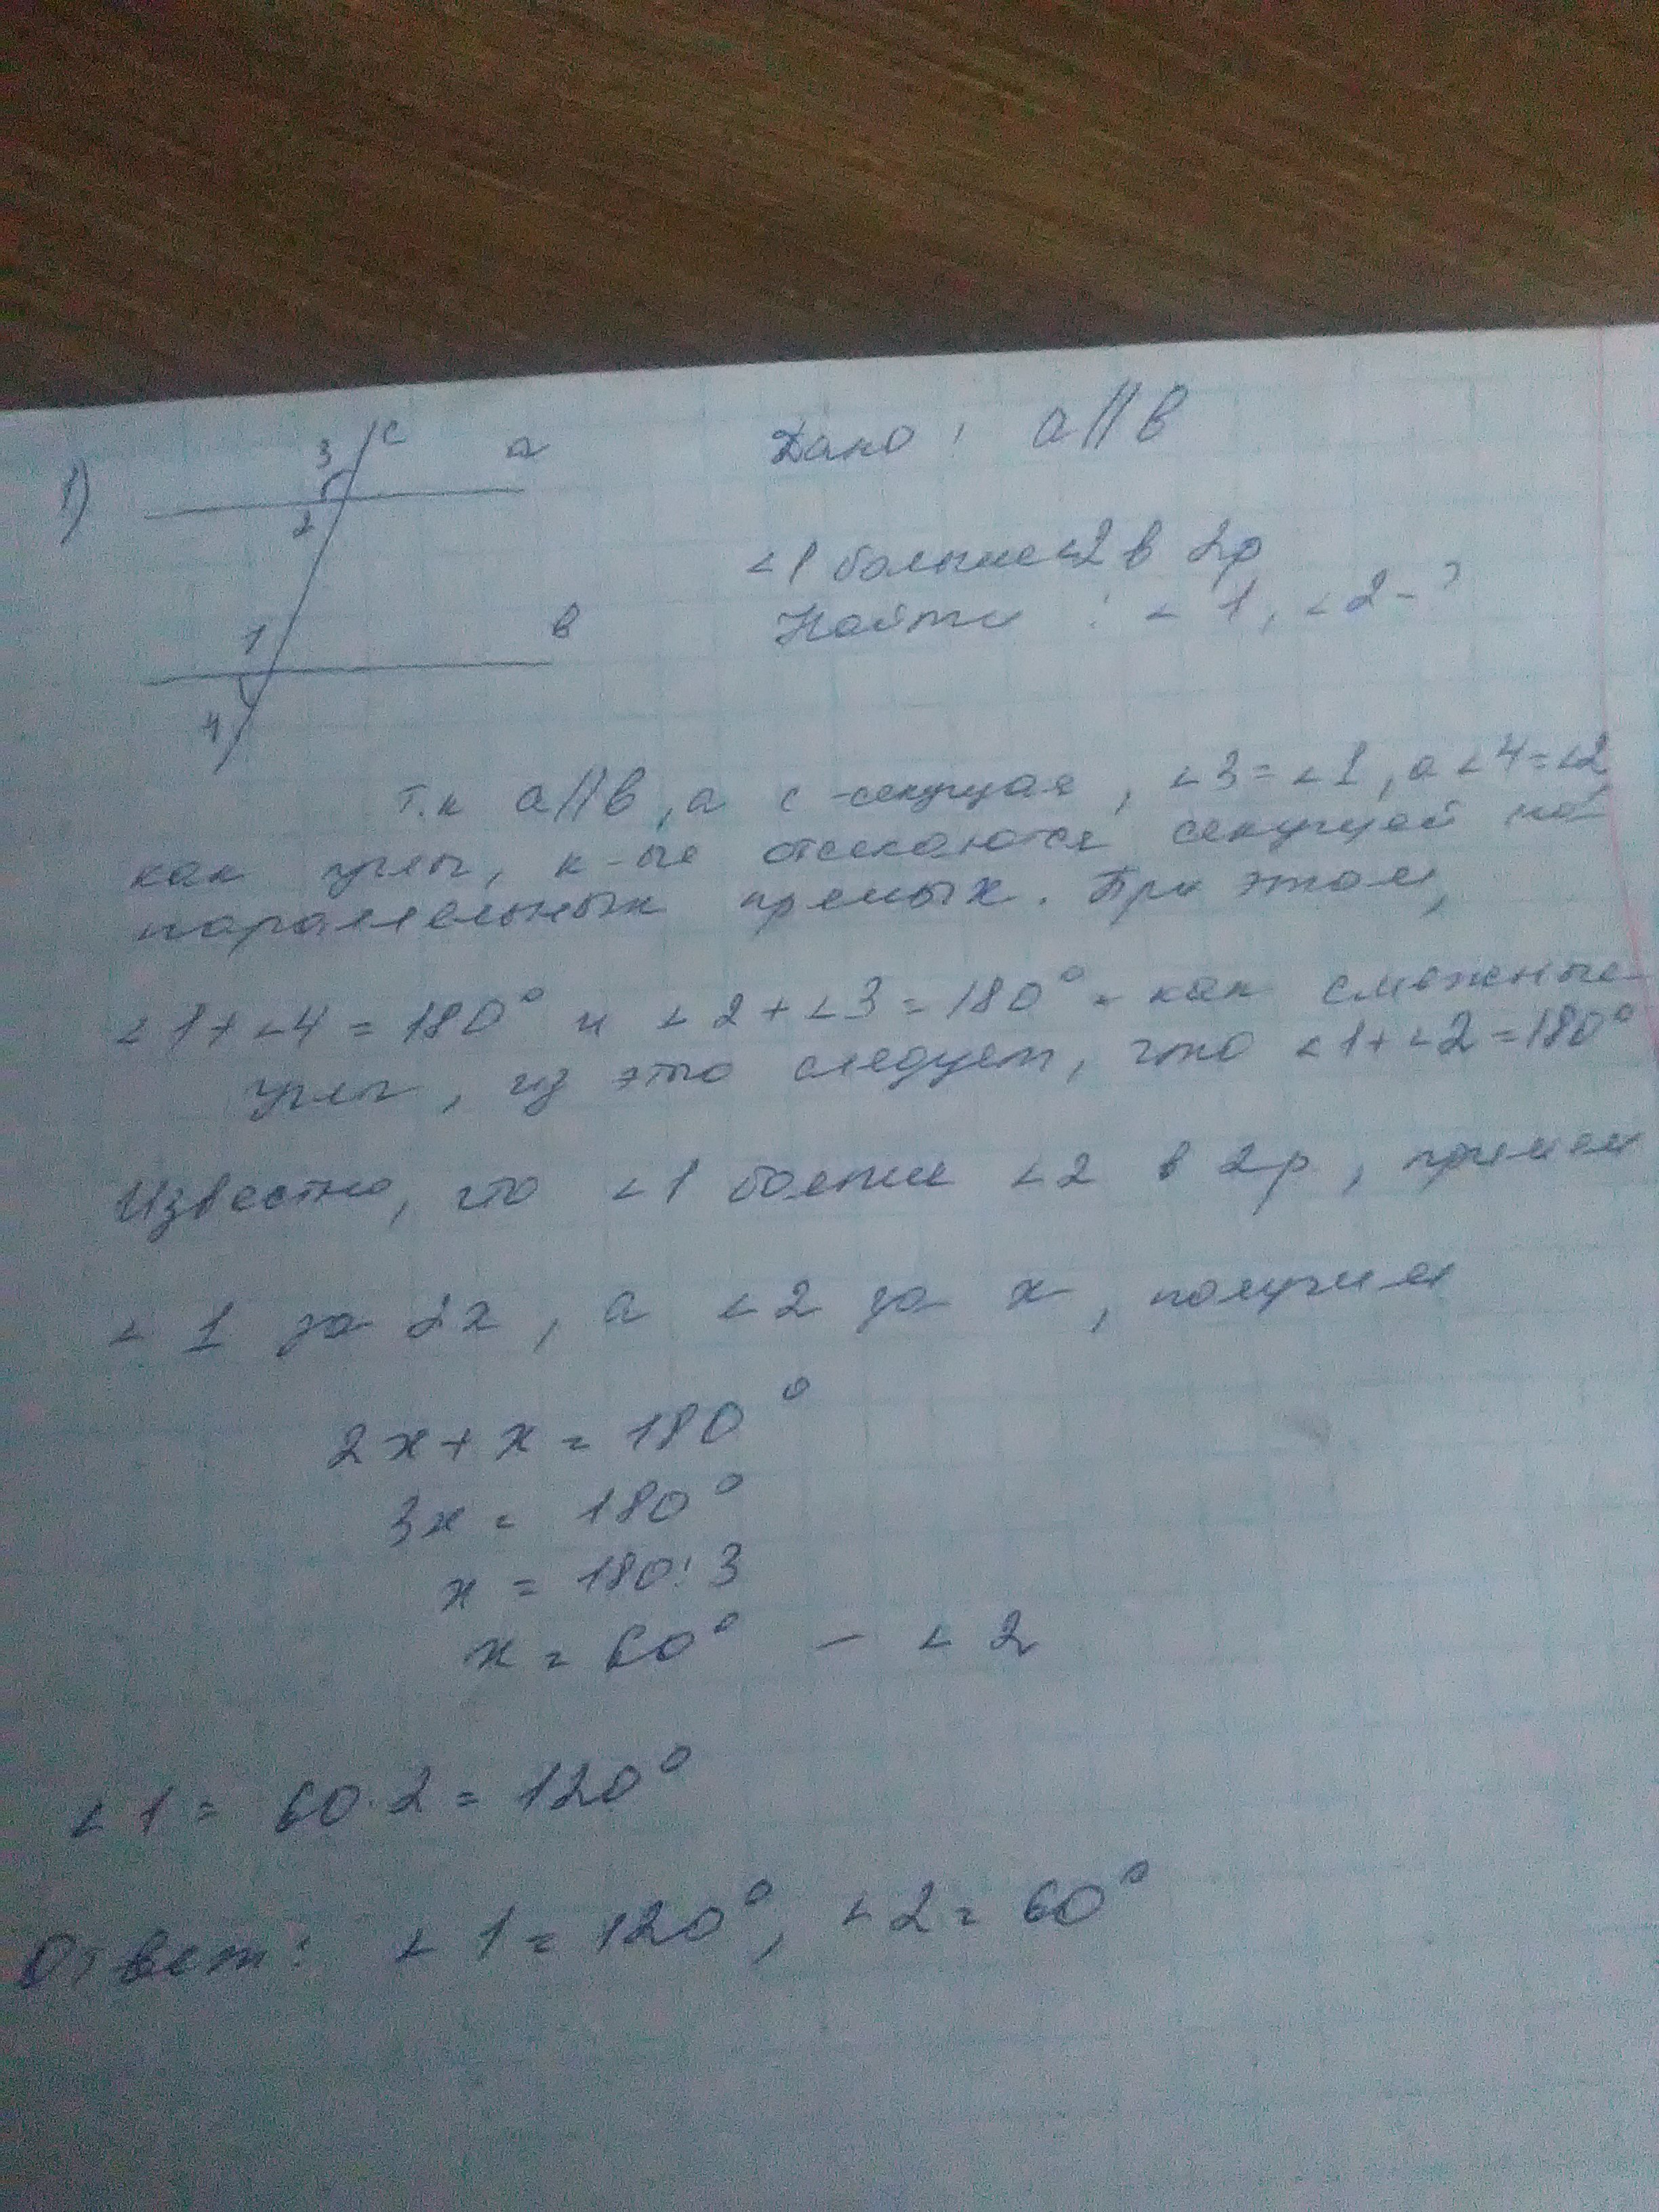 1)
3 c a
2
1 в
4
Дано: a||в
∠1 больше ∠2 в 2р
Найти: ∠1, ∠2-?
т.к a||в, а с-секущая, ∠3=∠1, а ∠4=∠2
как углы, к-ые отсекаются секущей на
параллельных прямых. При этом,
∠1+∠4=180° и ∠2+∠3=180° - как смежные
углы, из этого следует, что ∠1+∠2=180°
Известно, что ∠1 больше ∠2 в 2р, примем
∠1 за 2х, а ∠2 за х, получим
2х+х=180°
3х=180°
х=180:3
х=60° - ∠2
∠1=60·2=120°
Ответ: ∠1=120°, ∠2=60°